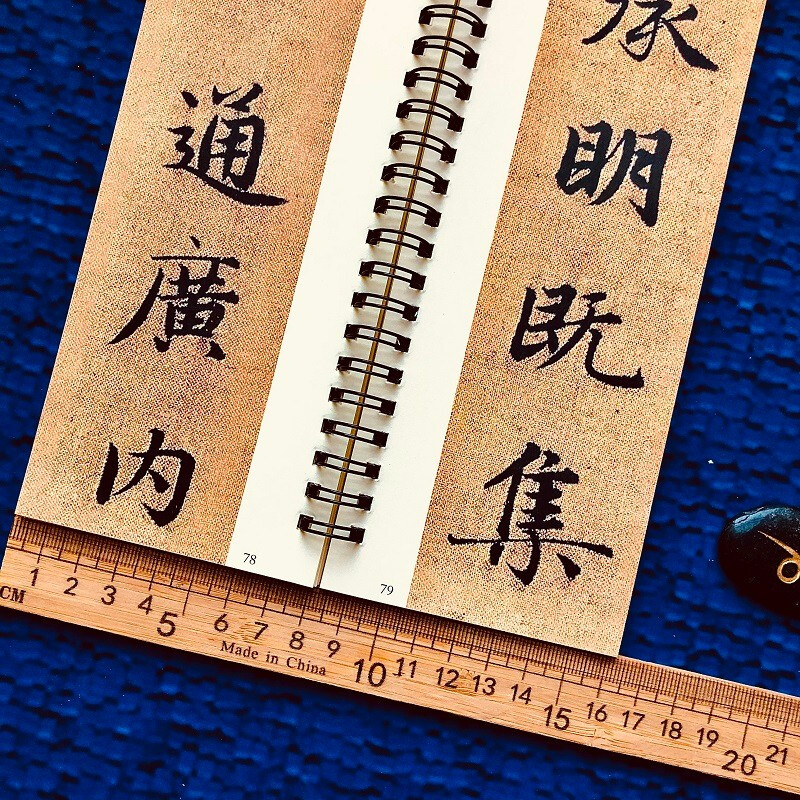 通
廣
内
承
明
既
集
78
79
CM 1 2 3 4 5 6 7 8 9 10 11 12 13 14 15 16 17 18 19 20 21
Made in China